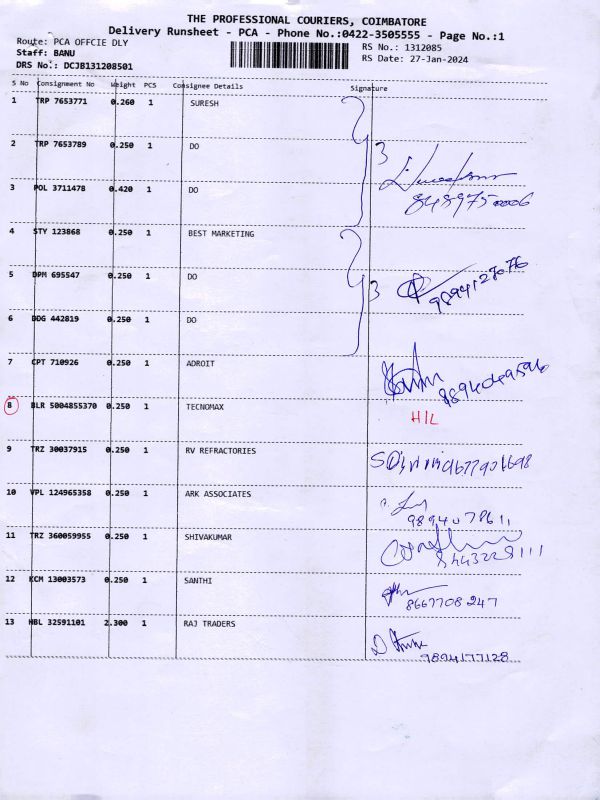 THE PROFESSIONAL COURIERS, COIMBATORE
Delivery Runsheet - PCA - Phone No.:0422-3505555 - Page No.:1
Route: PCA OFFCIE DLY
Staff: BANU
DRS No.: DCJB131208501
RS No.: 1312085
RS Date: 27-Jan-2024
S No Consignment No Weight PCS Consignee Details Signature
1 TRP 7653771 0.260 1 SURESH
2 TRP 7653789 0.250 1 DO 3
3 POL 3711478 0.420 1 DO
4 STY 123868 0.250 1 BEST MARKETING
5 DPM 695547 0.250 1 DO 3 9894127076
6 DDG 442819 0.250 1 DO
7 CPT 710926 0.250 1 ADROIT
8 BLR 5004855370 0.250 1 TECNOMAX H/L
9 TRZ 30037915 0.250 1 RV REFRACTORIES
10 VPL 124965358 0.250 1 ARK ASSOCIATES
9894078611
11 TRZ 360059955 0.250 1 SHIVAKUMAR
12 KCM 13003573 0.250 1 SANTHI
8667708247
13 HBL 32591101 2.300 1 RAJ TRADERS
9894177128